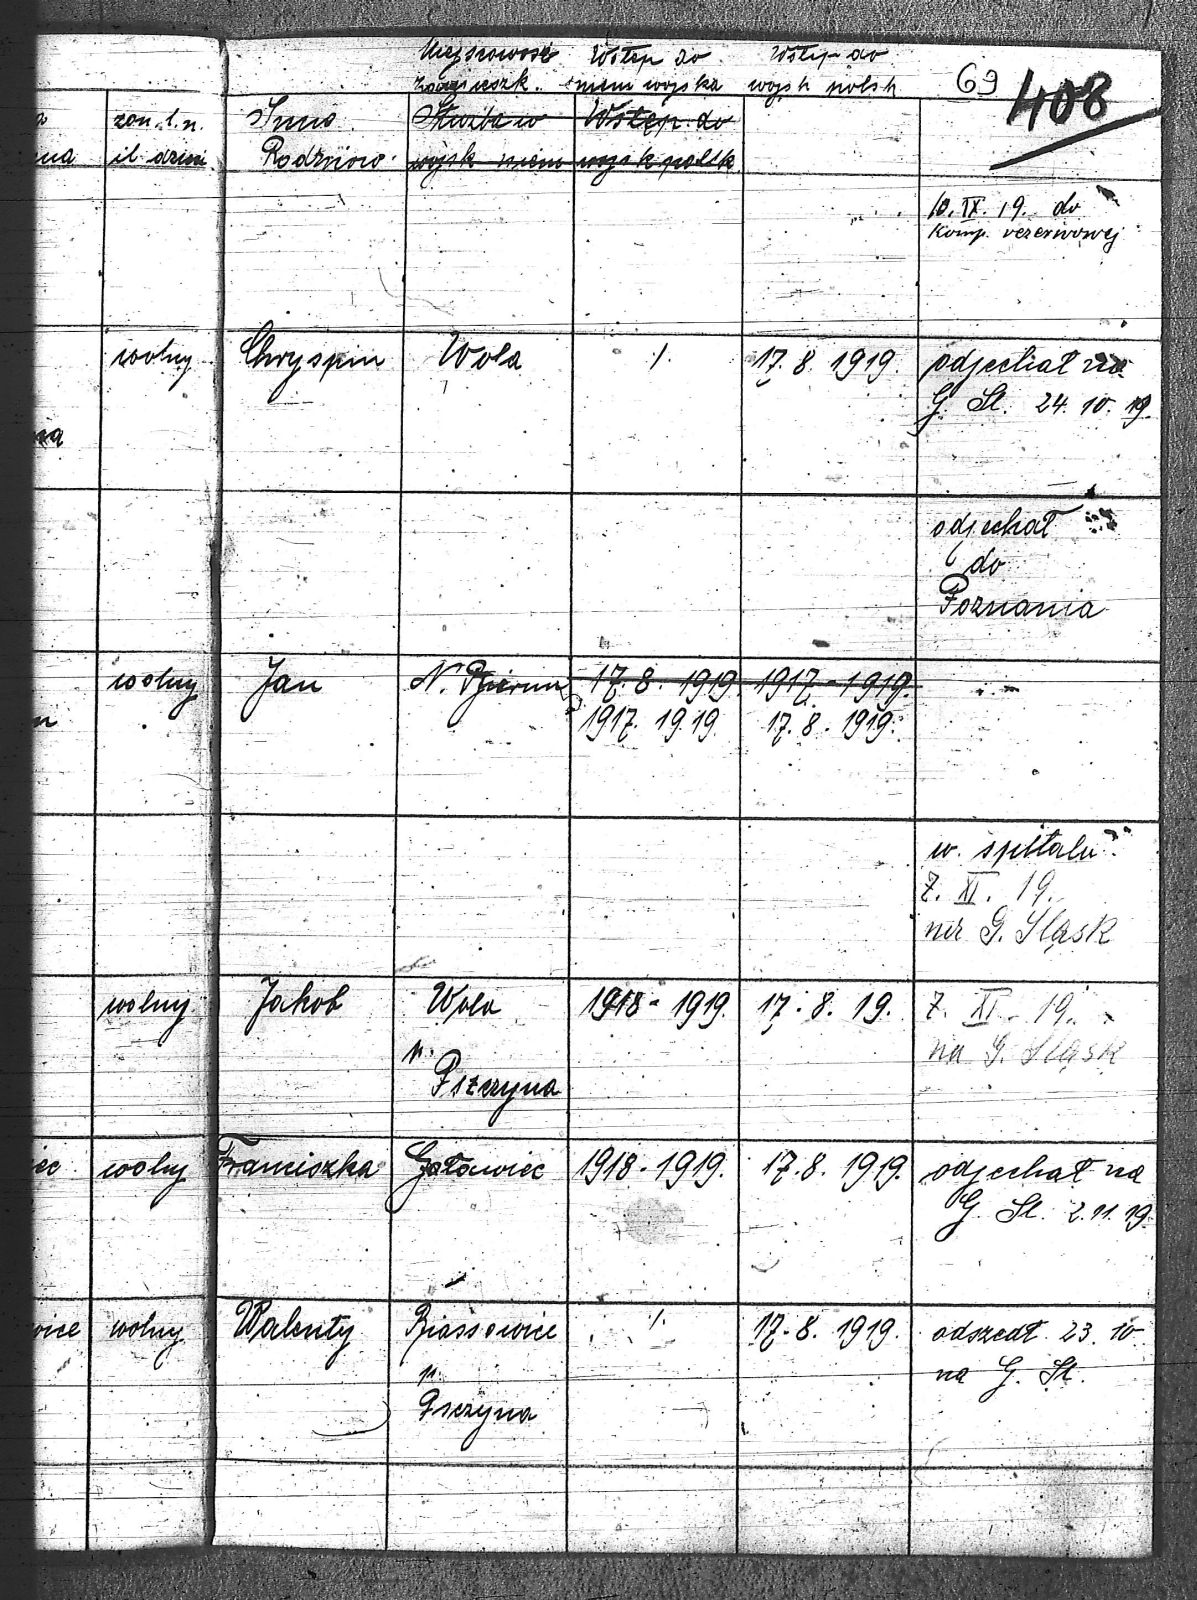 Wstęp do Wstęp do
zamieszk. niem wojska wojsk polsk 69 408
żon. l. n. Imię Służba w Wstęp do
il. dzieci Rodziców wojsk niem wojsk polsk
10. IX. 19. do
Komp. rezerwowej
wolny Chryspin Wola /. 17. 8. 1919. odjechał na
G. Śl. 24. 10. 19.
odjechał
do
Poznania
wolny Jan N. Bierun 17. 8. 1919 1917 - 1919.
1917. 1919. 17. 8. 1919.
w. spitalu
7. XI. 19.
na G. Śląsk
wolny Jakob Wola 1918 - 1919. 17. 8. 19. 7. XI. 19.
p. na G. Śląsk
Pszczyna
iec wolny Franciszka Goławiec 1918 - 1919. 17. 8. 1919. odjechał na
G. Śl. 2. 11. 19.
wice wolny Walenty Biassowice /. 17. 8. 1919. odszedł 23. 10
p. na G. Śl.
Psczyna